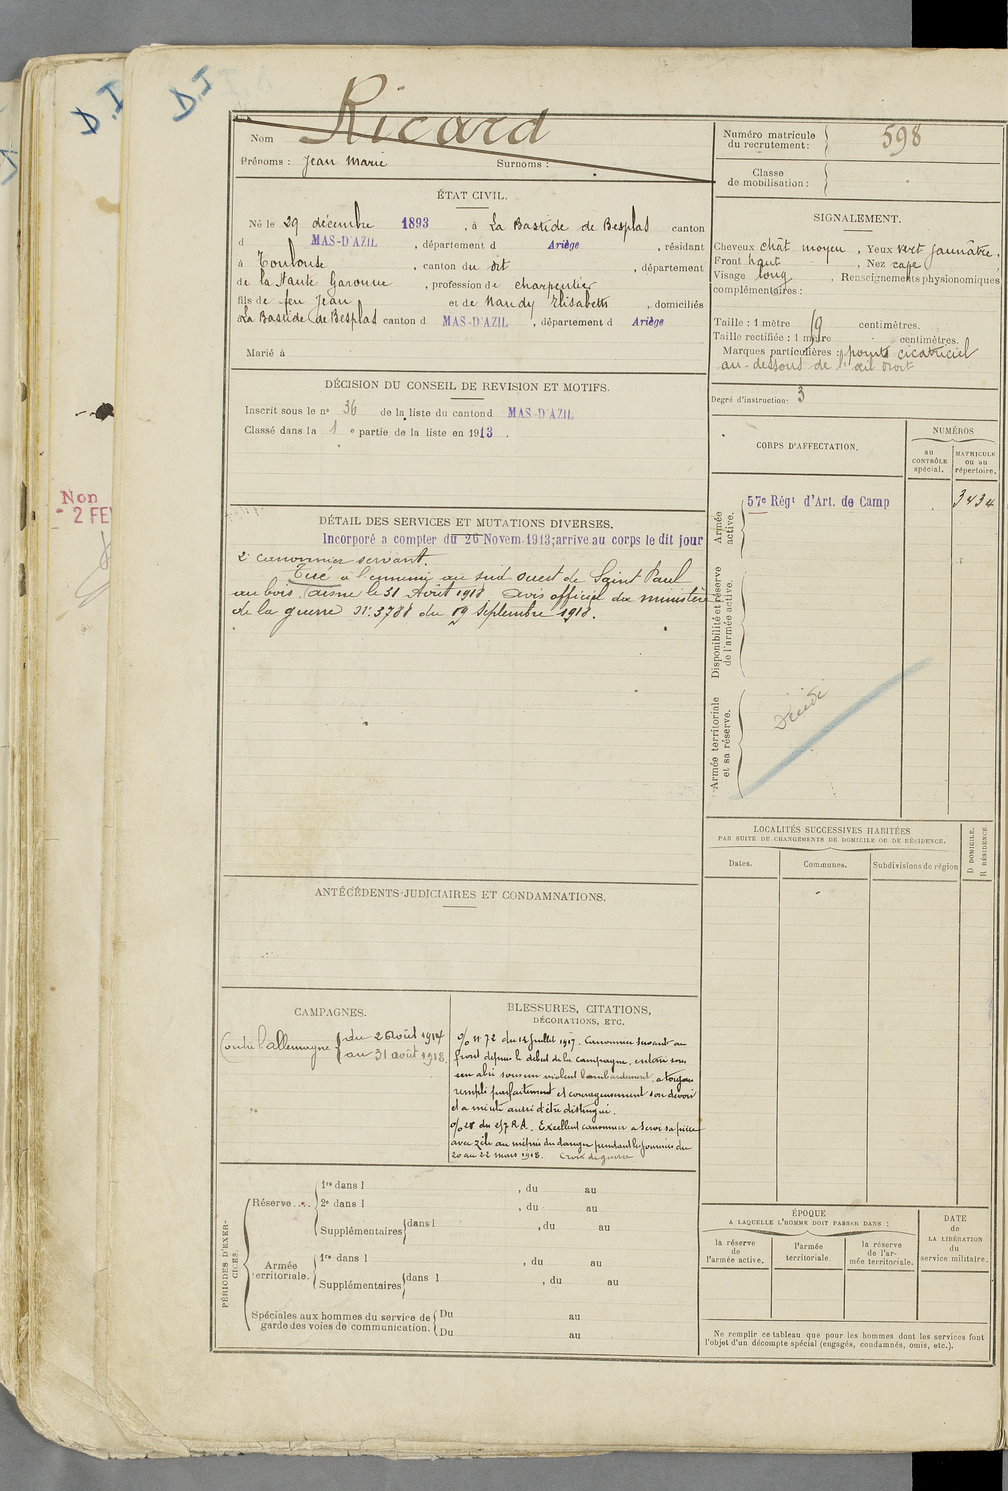 D.I
D.I
Ricard
Nom
Prénoms : Jean Marie Surnoms :
Numéro matricule
du recrutement : 598
Classe
de mobilisation :
ÉTAT CIVIL.
Né le 29 décembre 1893, à La Bastide de Besplas canton
d MAS-D'AZIL, département d Ariège, résidant
à Toulouse, canton du dit, département
de la Haute Garonne, profession de charpentier
fils de feu Jean et de Nandy Elisabeth, domiciliés
à La Bastide de Besplas canton d MAS-D'AZIL, département d Ariège
Marié à
SIGNALEMENT.
Cheveux chât moyen, Yeux vert jaunâtre,
Front haut, Nez cave
Visage long, Renseignements physionomiques
complémentaires :
Taille : 1 mètre 19 centimètres.
Taille rectifiée : 1 mètre centimètres.
Marques particulières : points cicatriciel
au-dessous de l'œil droit
Degré d'instruction : 3
DÉCISION DU CONSEIL DE REVISION ET MOTIFS.
Inscrit sous le nº 36 de la liste du canton d MAS-D'AZIL
Classé dans la 1e partie de la liste en 1913.
DÉTAIL DES SERVICES ET MUTATIONS DIVERSES.
Incorporé a compter du 26 Novem. 1913; arrive au corps le dit jour
2e canonnier servant.
Tué à l'ennemi au sud ouest de Saint Paul
au bois (aisne le 31 Août 1918 avis officiel du ministère
de la guerre N: 3788 du 19 Septembre 1918.
CORPS D'AFFECTATION.
NUMÉROS
au
CONTRÔLE
spécial.
MATRICULE
ou au
répertoire.
Armée
active.
57e Régt d'Art. de Camp 3434
Disponibilité et réserve
de l'armée active.
Armée territoriale
et sa réserve.
Non
2 FE
LOCALITÉS SUCCESSIVES HABITÉES
PAR SUITE DE CHANGEMENTS DE DOMICILE OU DE RÉSIDENCE.
Dates.
Communes.
Subdivisions de région
D DOMICILE.
R RÉSIDENCE.
ANTÉCÉDENTS JUDICIAIRES ET CONDAMNATIONS.
CAMPAGNES.
Contre l'allemagne
du 2 Août 1914
au 31 août 1918.
BLESSURES, CITATIONS,
DÉCORATIONS, ETC.
o/o N 72 du 14 Juillet 1917. Canonnier servant au
front depuis le début de la campagne, enterré sous
son abri sous un violent bombardement, a toujours
rempli parfaitement et courageusement son devoir
et a mérité aussi d'être distingué.
o/o 28 du 257 R.A. Excellent canonnier a servi sa pièce
avec zèle au mépris du danger pendant les journées du
20 au 22 mars 1918. Croix de guerre
PÉRIODES D'EXERCICES.
Réserve...
1re dans l , du au
2e dans l , du au
Supplémentaires dans l , du au
Armée
territoriale.
1re dans l , du au
Supplémentaires dans l , du au
Spéciales aux hommes du service de
garde des voies de communication.
Du au
Du au
ÉPOQUE
A LAQUELLE L'HOMME DOIT PASSER DANS :
la réserve
de
l'armée active.
l'armée
territoriale.
la réserve
de l'ar-
mée territoriale.
DATE
de
LA LIBÉRATION
du
service militaire.
Ne remplir ce tableau que pour les hommes dont les services font
l'objet d'un décompte spécial (engagés, condamnés, omis, etc.).